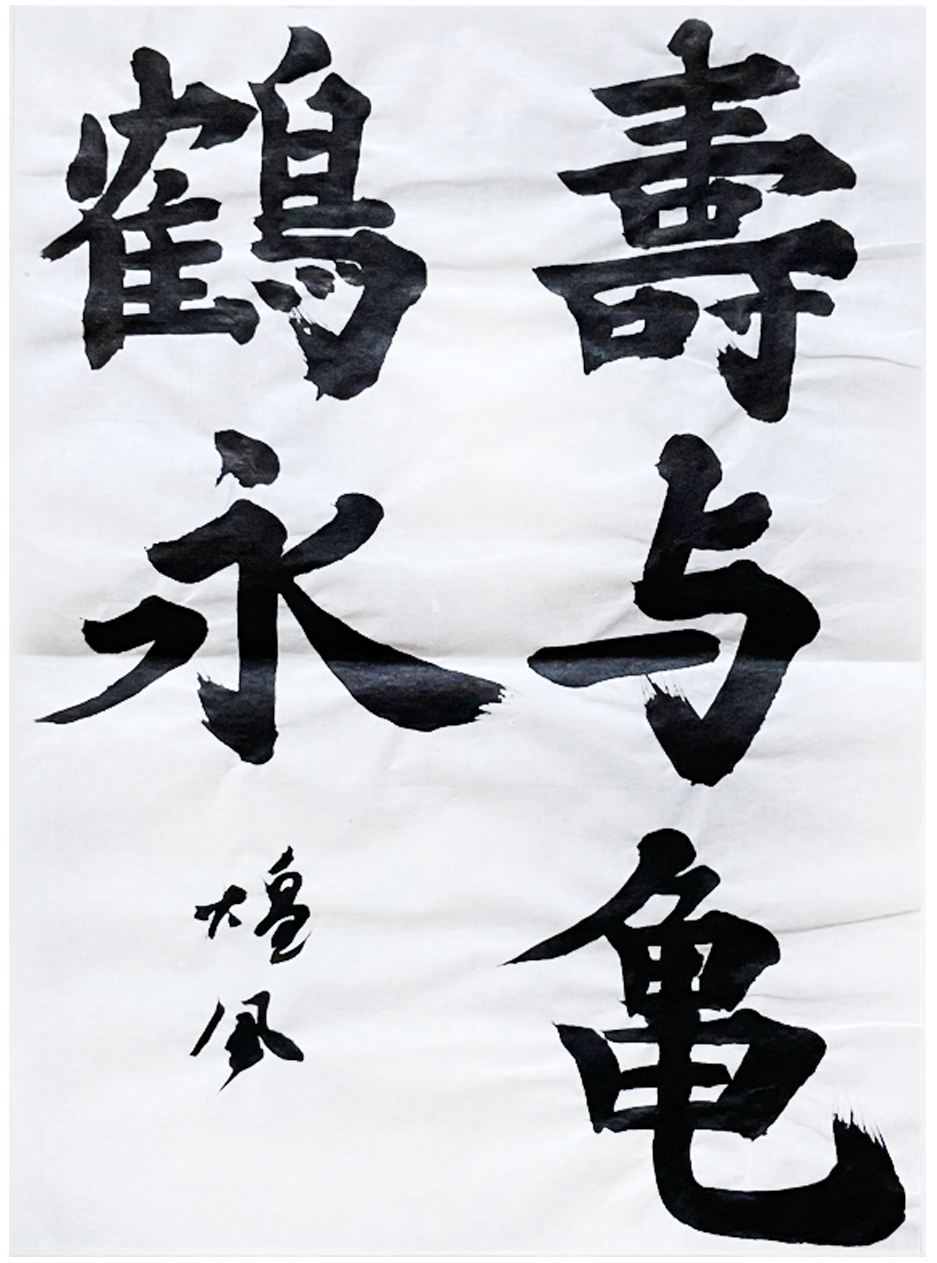 壽与亀
鶴永
煌風